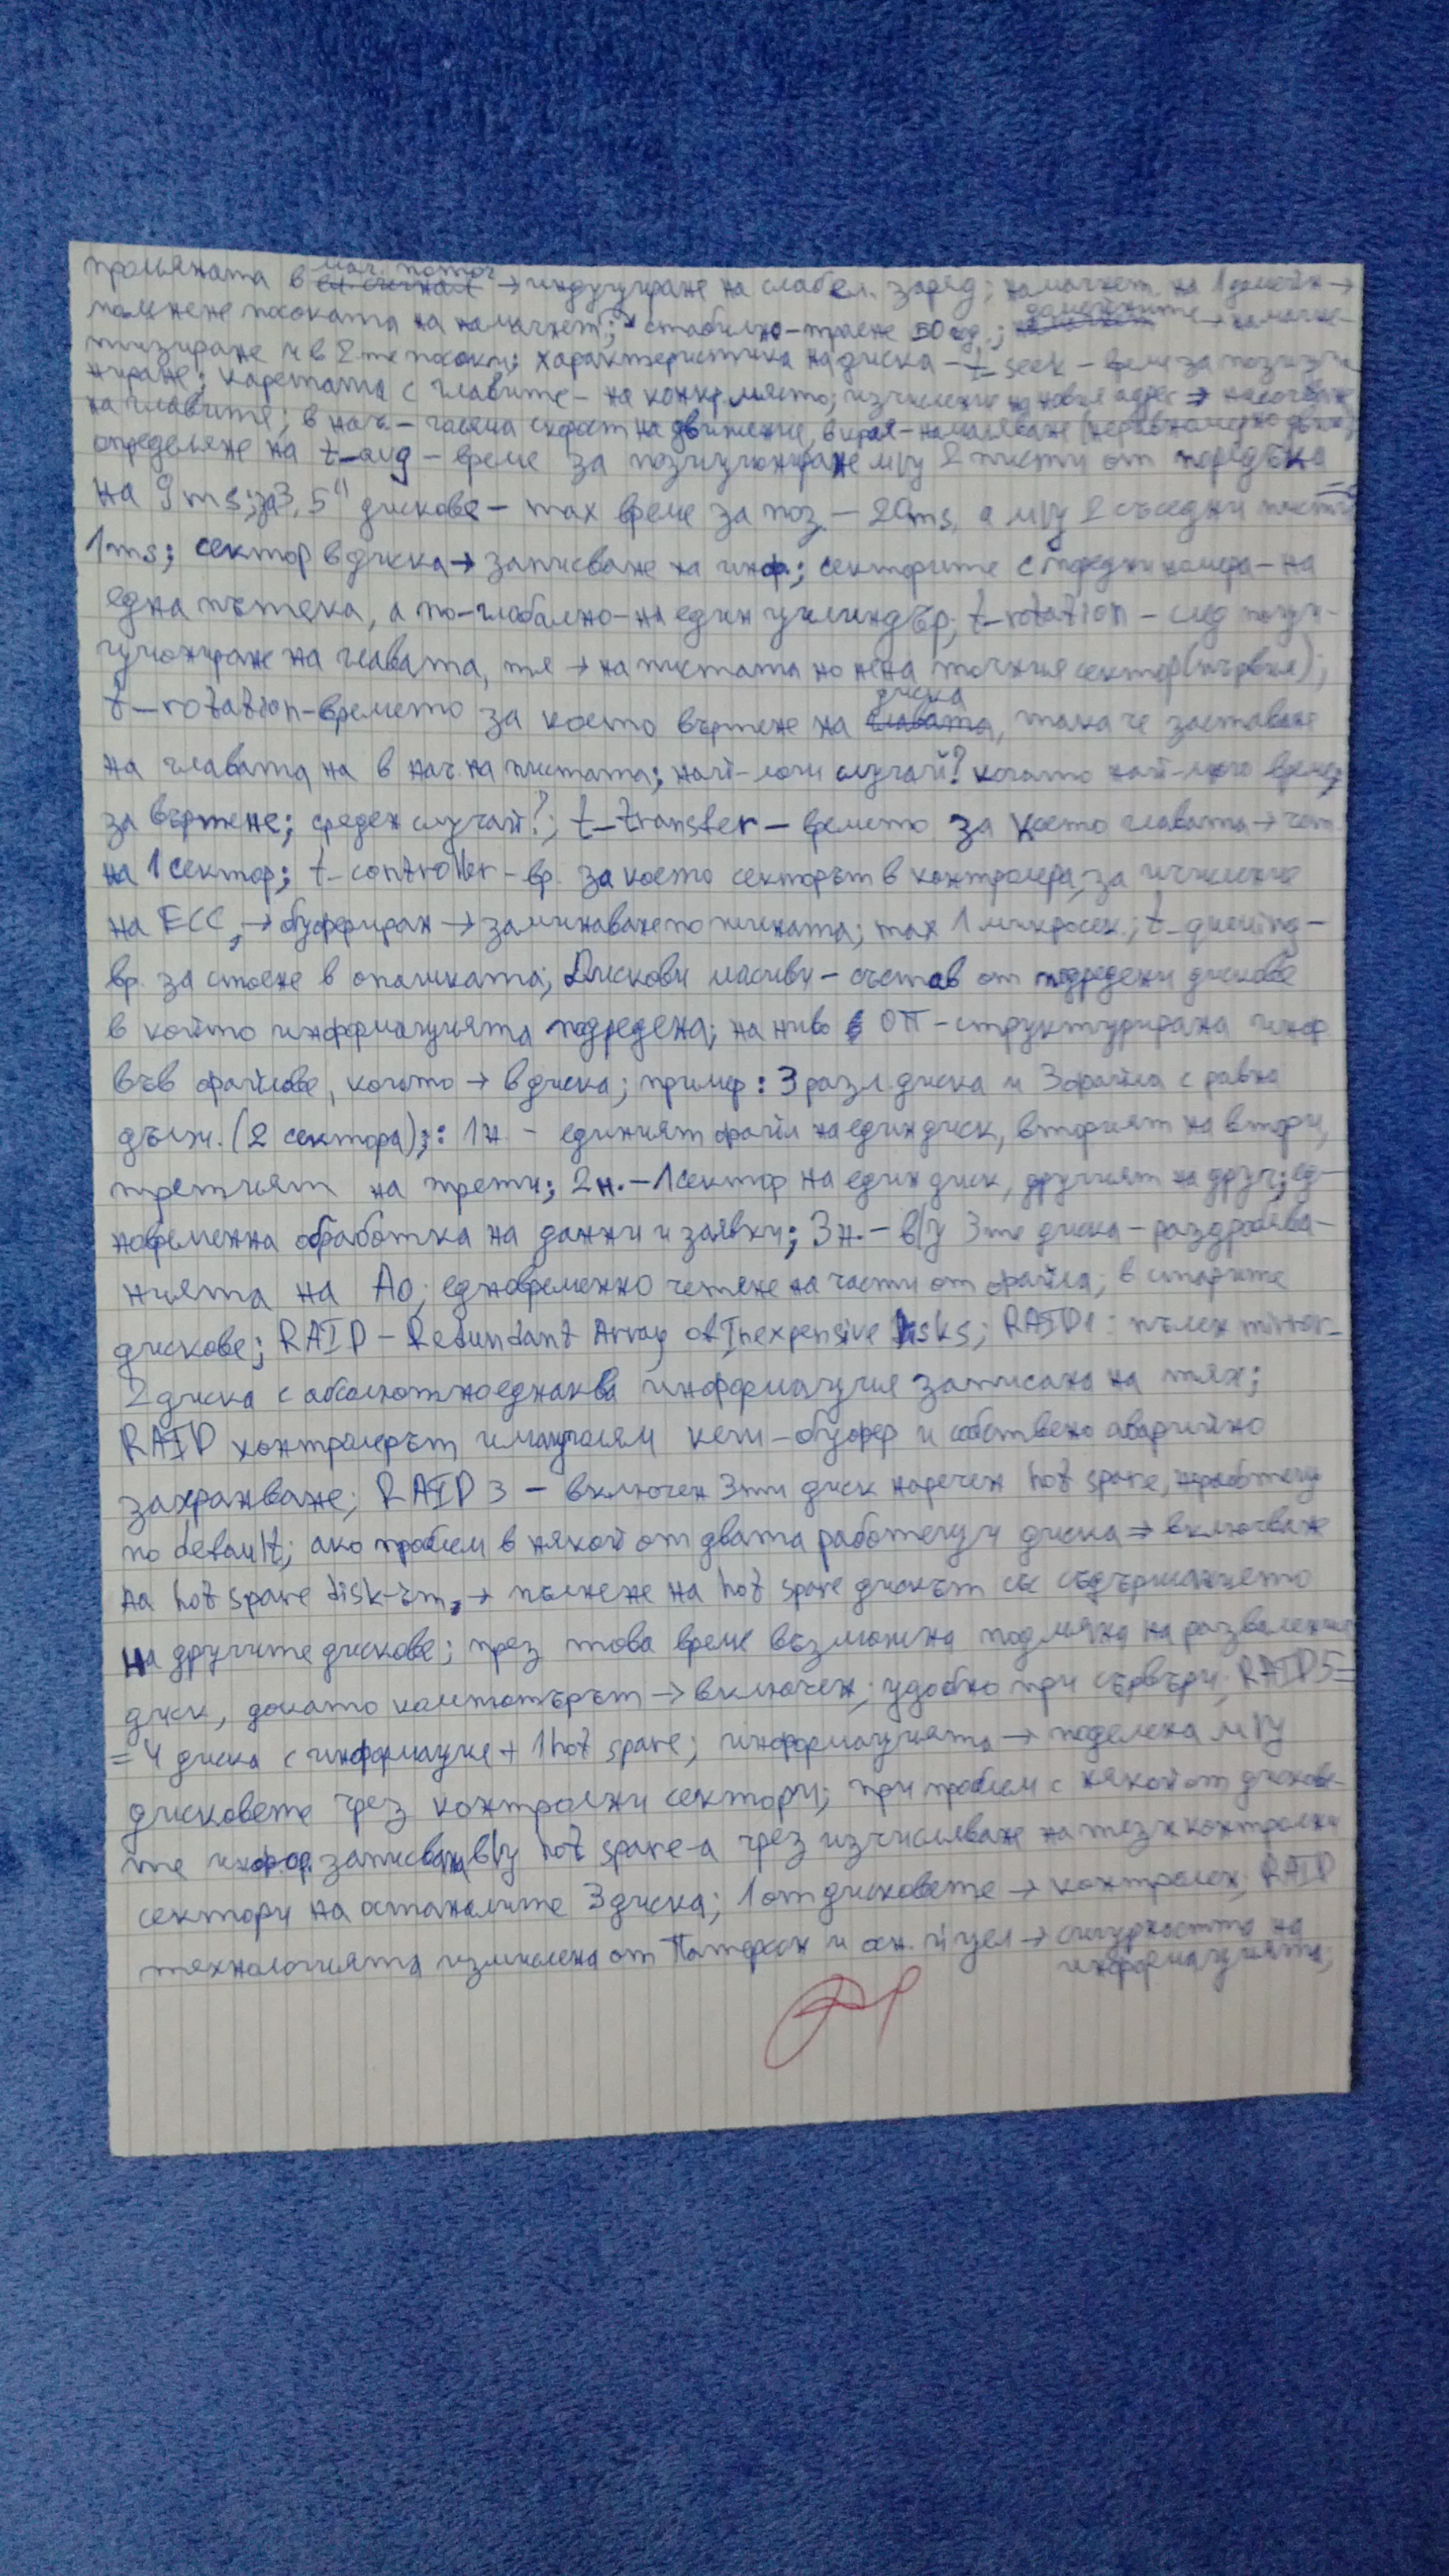 промяната в маг. поток → индуциране на слаб ел. заряд; намагнет. на 1 домейн →
помнене посоката на намагнет.; стабилно-траене 50 год.; домейните → намагне-
тизиране и в 2те посоки; характеристика на диска - t_seek - време за позицио
ниране; каретата с главите - на конкр. място; изчисление на новия адрес => насочване
на главите; в нач. - голяма скорост на движение, в края - намаляване (неравномерно движ.)
определяне на t_avg - време за позициониране м/у 2 писти от порядъка
на 9 ms; за 3,5" дискове - max време за поз. - 20ms, а м/у 2 съседни писти
1ms; сектор в диска → записване на инф.; секторите с поредни номера - на
една пътека, а по-глобално - на един цилиндър; t_rotation - след пози-
циониране на главата, тя → на пистата но не на точния сектор (първия);
t_rotation - времето за което въртене на диска, така че заставане
на главата на в нач. на пистата; най-лош случай? когато най-много време
за въртене; среден случай?; t_transfer - времето за което главата → чет.
на 1 сектор; t_controller - вр. за което секторът в контролера, за изчисление
на ECC, → буфериран → заминаване по шината; max 1 микросек.; t_queuing -
вр. за стоене в опашката; Дискови масиви - състав от подредени дискове
в който информацията подредена; на ниво ОП - структурирана инф
във файлове, които → в диска; пример: 3 разл. диска и 3 файла с равна
дълж. (2 сектора);: 1н. - единият файл на един диск, вторият на втори,
третият на трети; 2н. - 1 сектор на един диск, другият на друг; ед-
новременна обработка на данни и заявки; 3н. - в/у 3те диска - раздробява-
нията на A0; едновременно четене на части от файла; в старите
дискове; RAID - Redundant Array of Inexpensive Disks; RAID1: пълен mirror -
2 диска с абсолютно еднаква информация записана на тях;
RAID контролерът има голям кеш-буфер и собствено аварийно
захранване; RAID 3 - включен 3ти диск наречен hot spare, неработещ
по default; ако проблем в някой от двата работещи диска => включване
на hot spare disk-ът, → пълнене на hot spare дискът със съдържанието
на другите дискове; през това време възможна подмяна на разваления
диск, докато компютърът → включен; удобно при сървъри; RAID5 =
= 4 диска с информация + 1 hot spare; информацията → поделена м/у
дисковете чрез контролни сектори; при проблем с някой от дискове-
те инфор. записвана в/у hot spare-а чрез изчисляване на тези контролни
сектори на останалите 3 диска; 1 от дисковете → контролен; RAID
технологията измислена от Патерсон и осн. ѝ цел → сигурността на
информацията;